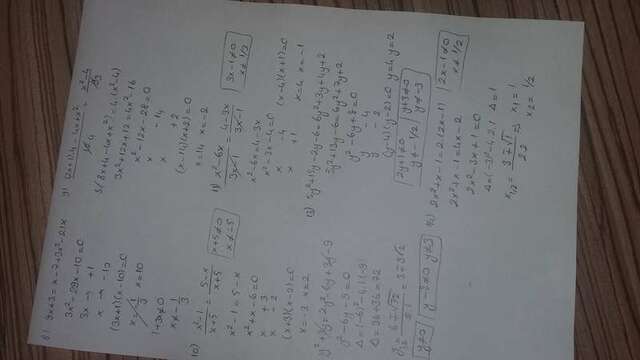 8) 9x+3=x-7+3x²-21x
3x²-29x-10=0
3x → +1
x → -10
(3x+1)(x-10)=0
x=-1/3 x=10
1+3x≠0
x≠-1/3
9) (2x+1).4-4x+x² / = x²-4 /
3(8x+4-4x+x²)=4.(x²-4)
3x²+12x+12=4x²-16
x²-12x-28=0
x -14
x +2
(x-14)(x+2)=0
x=14 x=-2
10) x²-1/x+5 = 5-x/x+5
x+5≠0
x≠-5
x²-1=5-x
x²+x-6=0
x +3
x -2
(x+3)(x-2)=0
x=-3 x=2
11) x²-6x/3x-1 = 4-3x/3x-1
3x-1≠0
x≠1/3
x²-6x=4-3x
x²-3x-4=0
x -4
x +1
(x-4)(x+1)=0
x=4 x=-1
y²-6y-9=0
Δ=(-6)²-4.1.(-9)
Δ=36+36=72
y≠0
y-3≠0 y≠3
13) 5y²+15y-2y-6=6y²+3y+4y+2
5y²+13y-6=6y²+7y+2
y²-6y+8=0
y -4
y -2
(y-4)(y-2)=0 y=4 y=2
2y+1≠0
y≠-1/2
y+3≠0
y≠-3
2x²+x-1=2.(2x-1)
2x-1≠0
x≠1/2
2x²+x-1=4x-2
2x²-3x+1=0
Δ=(-3)²-4.2.1 Δ=1
x1/2 = 3∓√1/2.2 ⇒ x1=1
x2=1/2